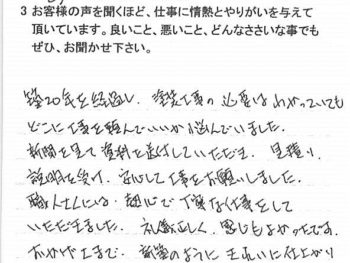 3 お客様の声を聞くほど、仕事に情熱とやりがいを与えて
頂いています。良いこと、悪いこと、どんなささいな事でも
ぜひ、お聞かせ下さい。
築20年を経過し、塗装工事の必要はわかっていても
どこに工事を頼んでいいか悩んでいました。
新聞を見て資料を送付していただき、見積り、
説明を受け、安心して工事をお願いしました。
職人さんには、熱心で丁寧な仕事をして
いただきました。礼儀正しく、感じもよかったです。
おかげさまで、新築のように きれいに仕上がり